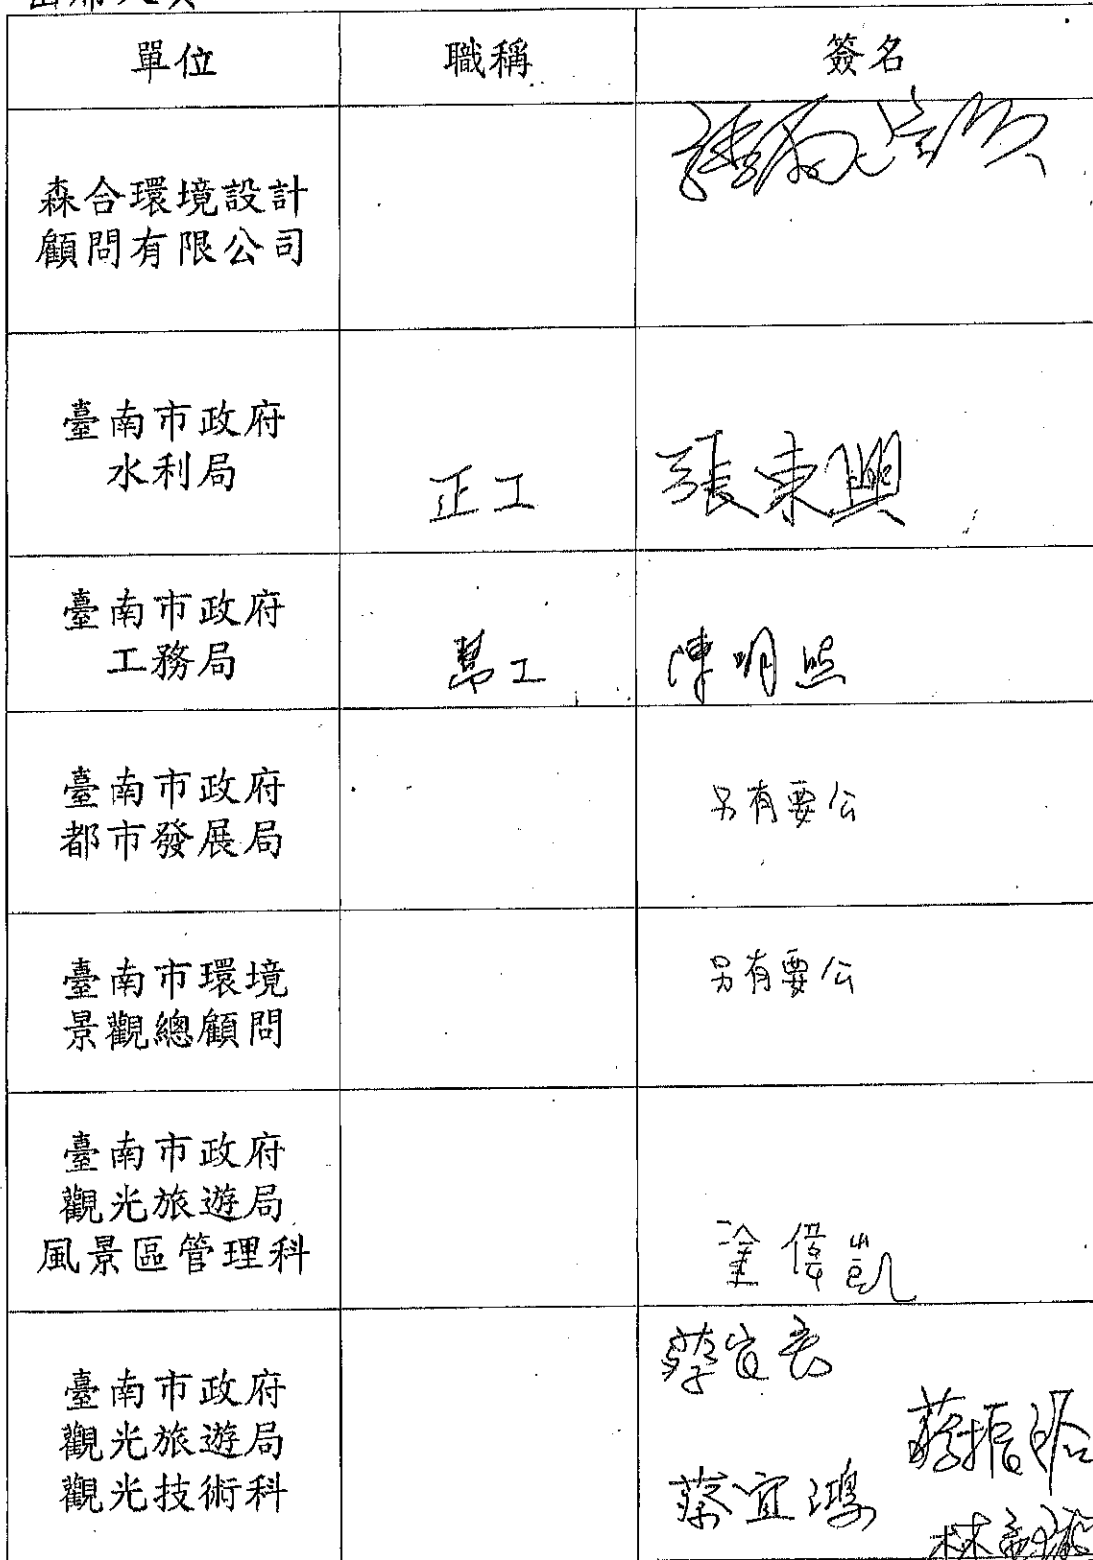 出席人員
單位 職稱 簽名
森合環境設計
顧問有限公司
臺南市政府
水利局
正工 張東興
臺南市政府
工務局
幫工 陳明照
臺南市政府
都市發展局
另有要公
臺南市環境
景觀總顧問
另有要公
臺南市政府
觀光旅遊局
風景區管理科
塗偉凱
臺南市政府
觀光旅遊局
觀光技術科
蔡宜
蔡宜鴻